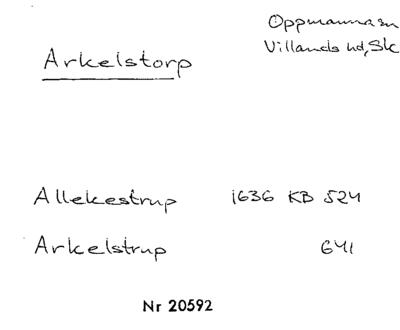 Oppmanna sn
Villands hd, Sk
Arkelstorp
Allekestrup 1636 KB 524
Arkelstrup 641
Nr 20592